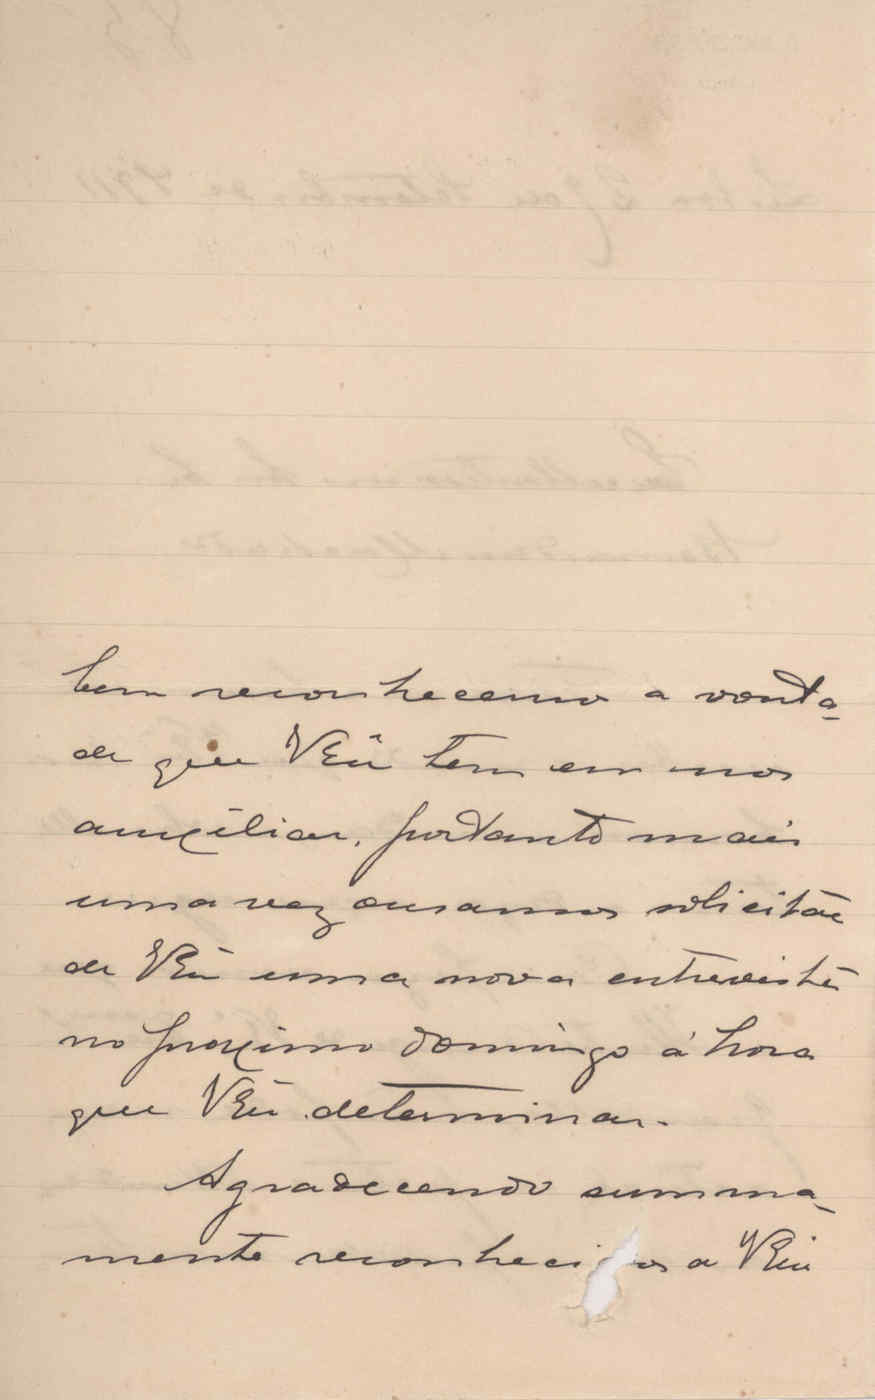 bem reconhecemos a vonta-
de que VExª tem em nos
auxiliar, portanto mais
uma vez ousamos solicitar
de VExª uma nova entrevista
no proximo domingo á hora
que VExª determinar.
Agradecendo summa-
mente reconheci os a VExª